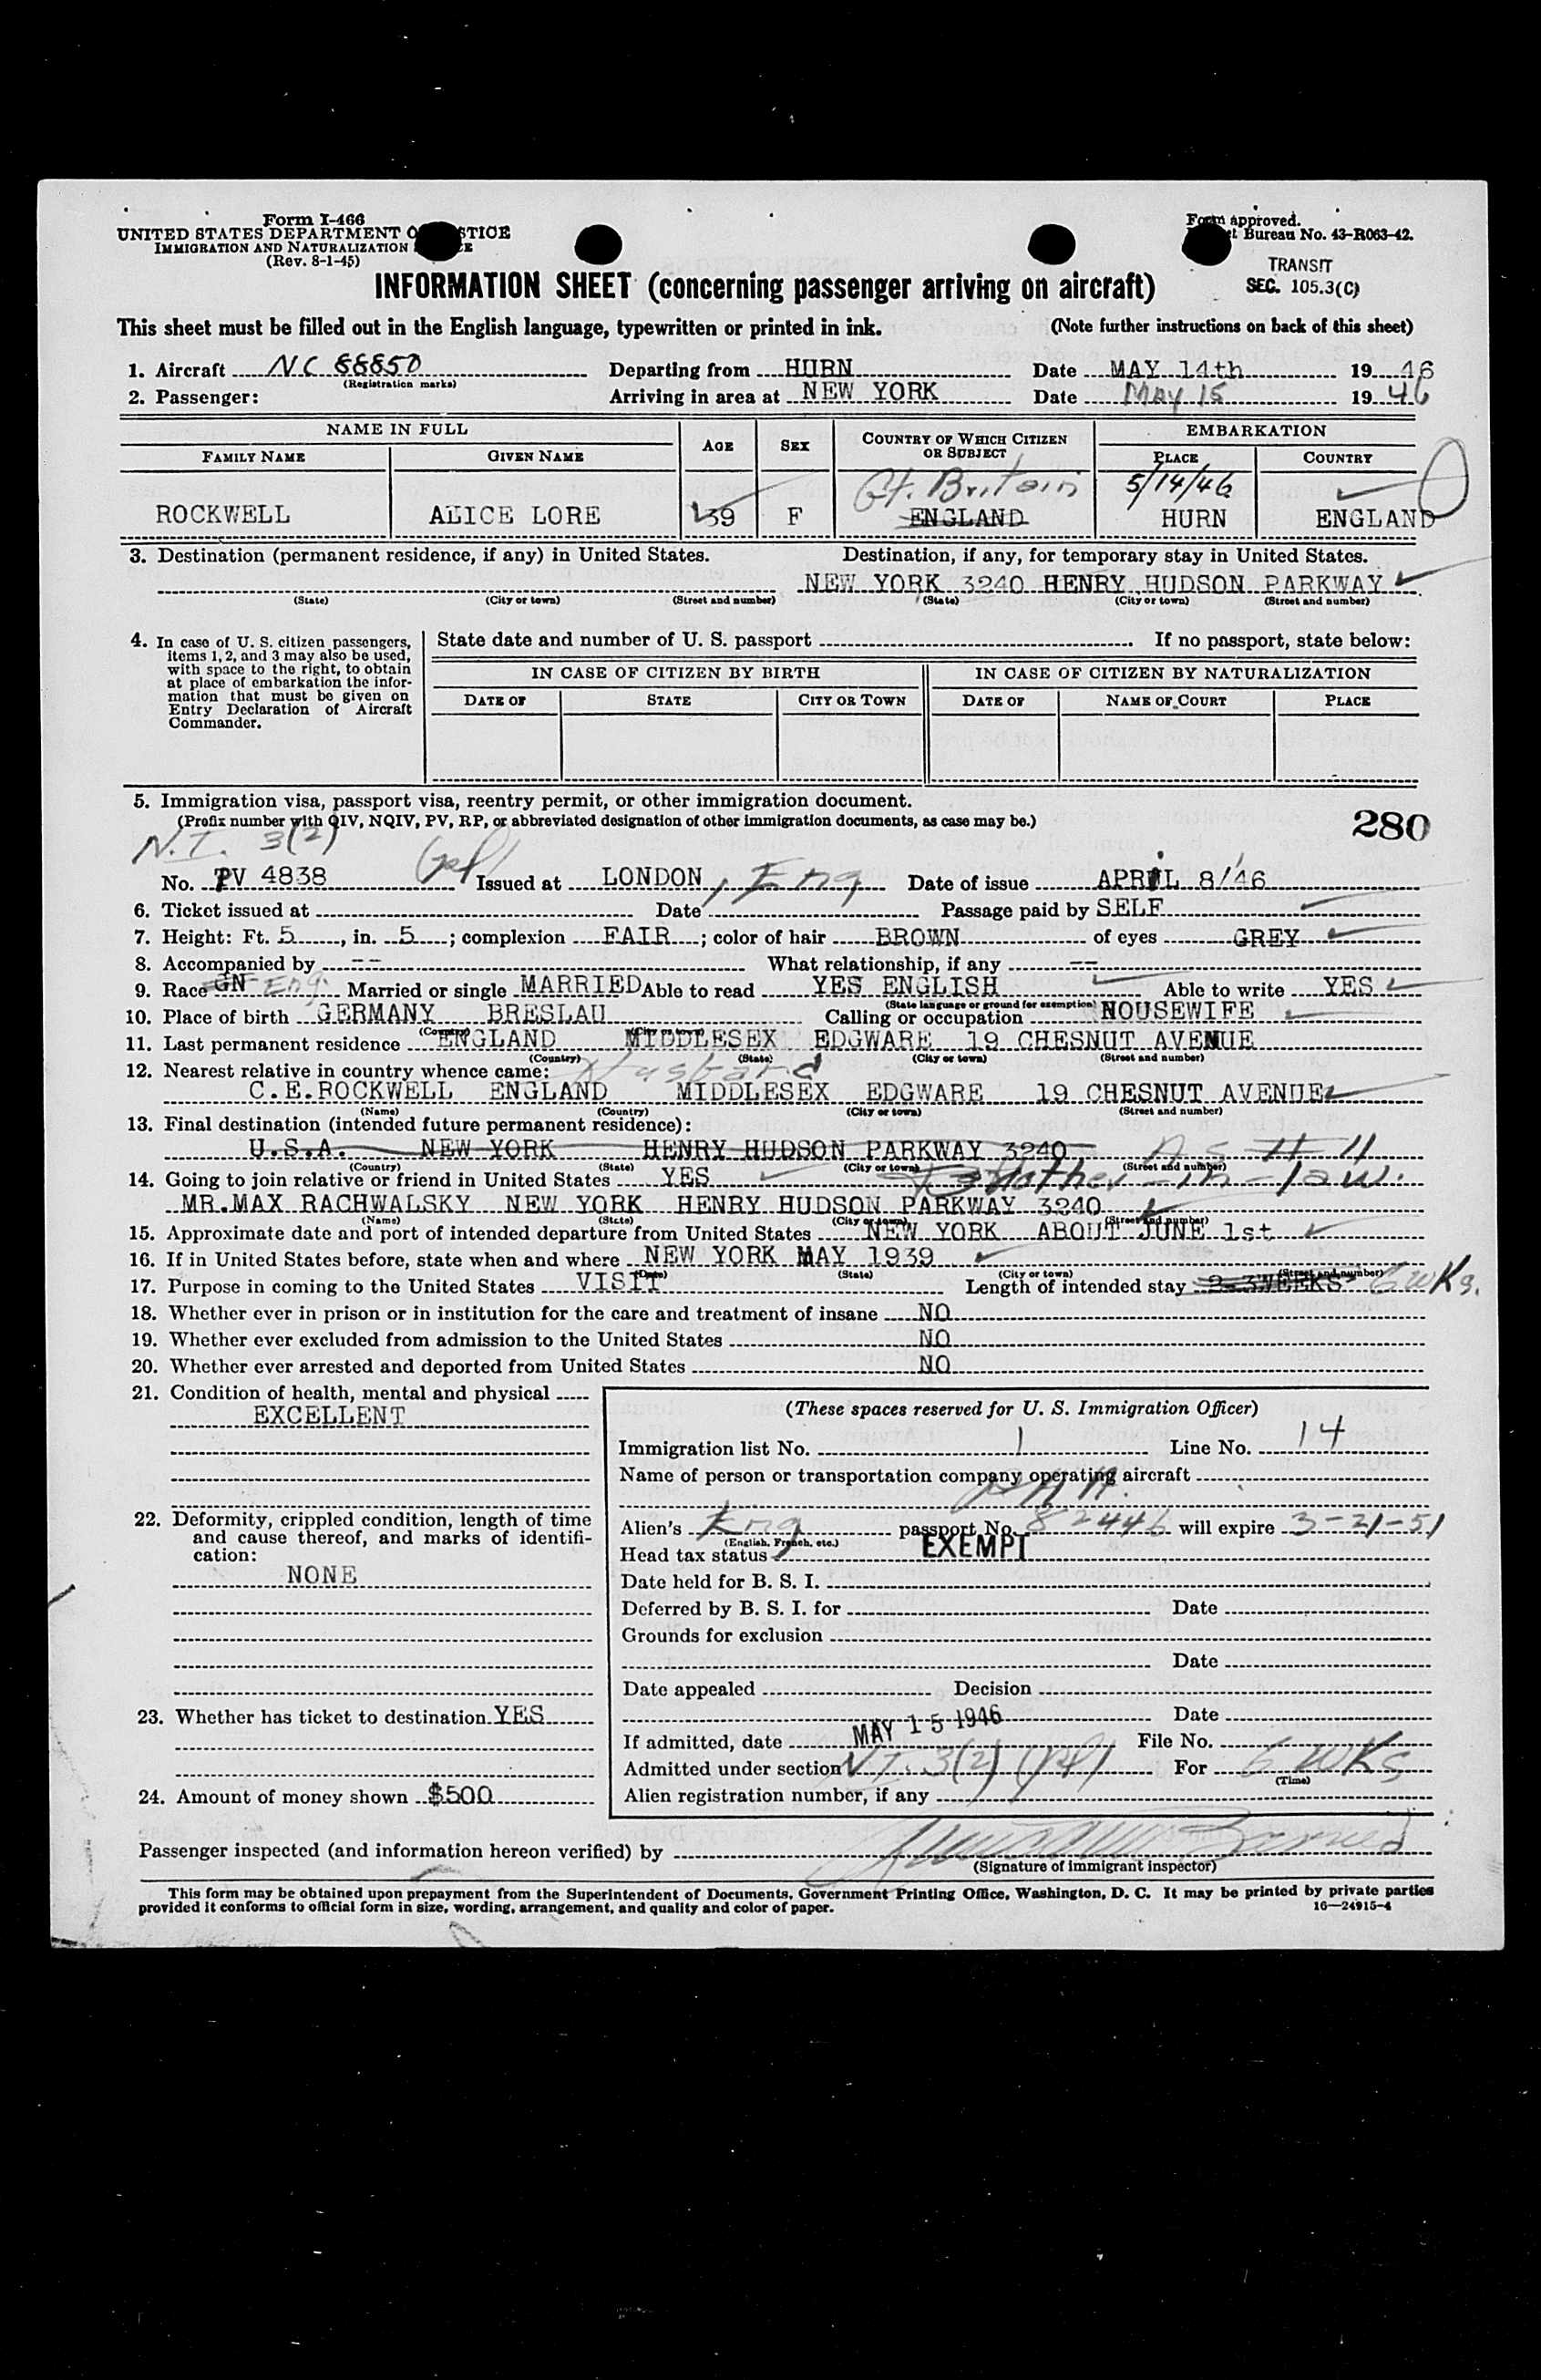 Form I-466
UNITED STATES DEPARTMENT O STICE
IMMIGRATION AND NATURALIZATION
(Rev. 8-1-45)
Form approved.
t Bureau No. 43-R063-42.
TRANSIT
SEC. 105.3(C)
INFORMATION SHEET (concerning passenger arriving on aircraft)
This sheet must be filled out in the English language, typewritten or printed in ink. (Note further instructions on back of this sheet)
1. Aircraft NC 88850 Departing from HURN Date MAY 14th 19 46
(Registration marks)
2. Passenger: Arriving in area at NEW YORK Date MAY 15 19 46
NAME IN FULL AGE SEX COUNTRY OF WHICH CITIZEN OR SUBJECT EMBARKATION
FAMILY NAME GIVEN NAME PLACE COUNTRY
Gt. Britain 5/14/46
ROCKWELL ALICE LORE 39 F ENGLAND HURN ENGLAND
3. Destination (permanent residence, if any) in United States. Destination, if any, for temporary stay in United States.
NEW YORK 3240 HENRY HUDSON PARKWAY
(State) (City or town) (Street and number) (State) (City or town) (Street and number)
4. In case of U. S. citizen passengers,
items 1, 2, and 3 may also be used,
with space to the right, to obtain
at place of embarkation the infor-
mation that must be given on
Entry Declaration of Aircraft
Commander.
State date and number of U. S. passport If no passport, state below:
IN CASE OF CITIZEN BY BIRTH IN CASE OF CITIZEN BY NATURALIZATION
DATE OF STATE CITY OR TOWN DATE OF NAME OF COURT PLACE
5. Immigration visa, passport visa, reentry permit, or other immigration document.
(Prefix number with QIV, NQIV, PV, RP, or abbreviated designation of other immigration documents, as case may be.)
280
N.I. 3(2)
No. PV 4838 Issued at LONDON, Eng Date of issue APRIL 8/46
6. Ticket issued at Date Passage paid by SELF
7. Height: Ft. 5, in. 5; complexion FAIR; color of hair BROWN of eyes GREY
8. Accompanied by -- What relationship, if any --
9. Race GN Eng. Married or single MARRIED Able to read YES ENGLISH Able to write YES
(State language or ground for exemption)
10. Place of birth GERMANY BRESLAU Calling or occupation HOUSEWIFE
(Country) (City or town)
11. Last permanent residence ENGLAND MIDDLESEX EDGWARE 19 CHESNUT AVENUE
(Country) (State) (City or town) (Street and number)
12. Nearest relative in country whence came: Husband
C.E.ROCKWELL ENGLAND MIDDLESEX EDGWARE 19 CHESNUT AVENUE
(Name) (Country) (City or town) (Street and number)
13. Final destination (intended future permanent residence):
U.S.A. NEW YORK HENRY HUDSON PARKWAY 3240 as #11
(Country) (State) (City or town) (Street and number)
14. Going to join relative or friend in United States YES Brother-in-law.
MR.MAX RACHWALSKY NEW YORK HENRY HUDSON PARKWAY 3240
(Name) (State) (City or town) (Street and number)
15. Approximate date and port of intended departure from United States NEW YORK ABOUT JUNE 1st
16. If in United States before, state when and where NEW YORK MAY 1939
(Date) (State) (City or town) (Street and number)
17. Purpose in coming to the United States VISIT Length of intended stay 2-3WEEKS 6 wks.
18. Whether ever in prison or in institution for the care and treatment of insane NO
19. Whether ever excluded from admission to the United States NO
20. Whether ever arrested and deported from United States NO
21. Condition of health, mental and physical
EXCELLENT
22. Deformity, crippled condition, length of time
and cause thereof, and marks of identifi-
cation:
NONE
23. Whether has ticket to destination YES
24. Amount of money shown $500
(These spaces reserved for U. S. Immigration Officer)
Immigration list No. 1 Line No. 14
Name of person or transportation company operating aircraft
Alien's Eng passport No. 82446 will expire 3-21-51
(English, French, etc.)
Head tax status EXEMPT
Date held for B. S. I.
Deferred by B. S. I. for Date
Grounds for exclusion
Date
Date appealed Decision
Date
If admitted, date MAY 15 1946 File No.
Admitted under section N.I. 3(2) For 6 wks
(Time)
Alien registration number, if any
Passenger inspected (and information hereon verified) by
(Signature of immigrant inspector)
This form may be obtained upon prepayment from the Superintendent of Documents, Government Printing Office, Washington, D. C. It may be printed by private parties
provided it conforms to official form in size, wording, arrangement, and quality and color of paper. 16—24915-4